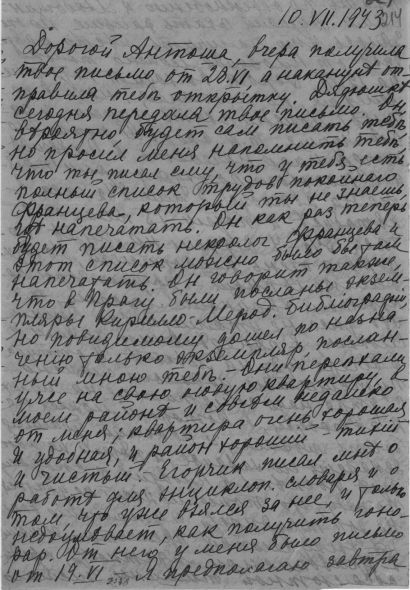 10.VII.1943
214
Дорогой Антоша, вчера получила
твое письмо от 28.VI, а накануне от
правила тебѣ открытку. Дядюшкѣ
сегодня передала твое письмо. Он
вѣроятно, будет сам писать тебѣ
но просил меня напомнить тебѣ
что ты писал ему, что у тебя есть
полный список трудов покойнаго
Францева, который ты не знаешь,
гдѣ напечатать. Он как раз теперь
будет писать некролог Францева и
этот список можно было бы там
напечатать. Он говорит также,
что в Прагу были посланы экзем-
пляры Кирилло-Мефод. библиографии
но повидимому дошел по назна-
чению только экземпляр, послан-
ный мною тебѣ. – Они переѣхали
уже на свою новую квартиру в
моем районѣ и совсѣм недалеко
от меня; квартира очень хорошая
и удобная, и район хороший – тихий
и чистый. Егорчик писал мнѣ о
работѣ для энциклоп. словаря и о
том, что уже взялся за нее, и только
недоумѣвает, как получить гоно-
рар. От него у меня было письмо
от 19.VI Я предполагаю завтра